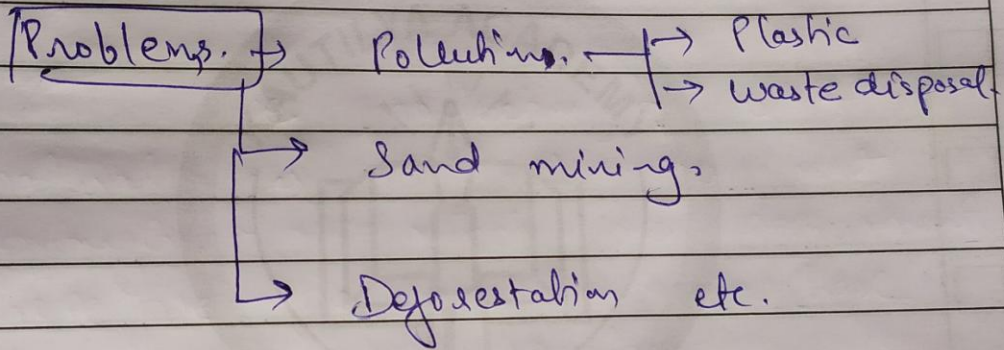 Problems. → Pollution. → Plastic
→ waste disposal.
→ Sand mining.
→ Deforestation etc.